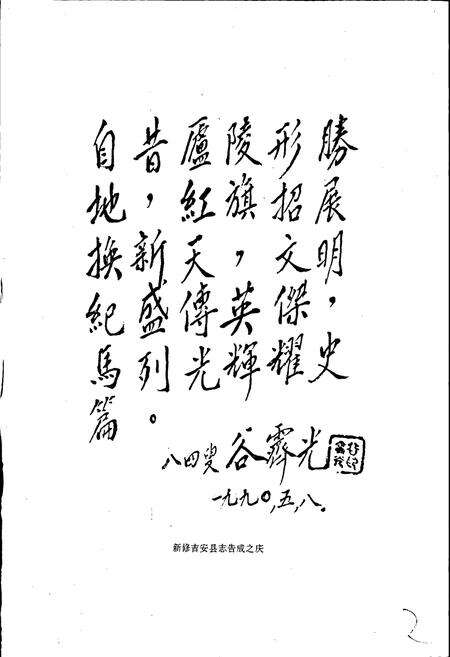 自昔廬陵形勝
地，紅旗招展
換新天，文明
紀盛傳英傑，
馬列光輝耀史
篇。
八四叟 谷霽光
一九九〇，五，八。
新修吉安县志告成之庆
2